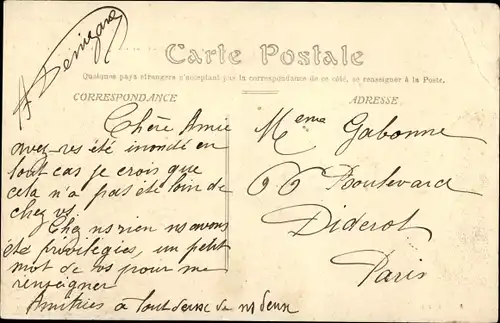 Carte Postale
Quelques pays étrangers n'acceptant pas la correspondance de ce côté, se renseigner à la Poste.
CORRESPONDANCE
ADRESSE
Chère Amie
avez-vs été inondé en
tout cas je crois que
cela n'a pas été loin de
chez vs.
Chez ns rien ns avons
été privilégiés, un petit
mot de vs pour me
renseigner
Amitiés à tout de ns deux
Meme Gabonne
66 Boulevard
Diderot
Paris